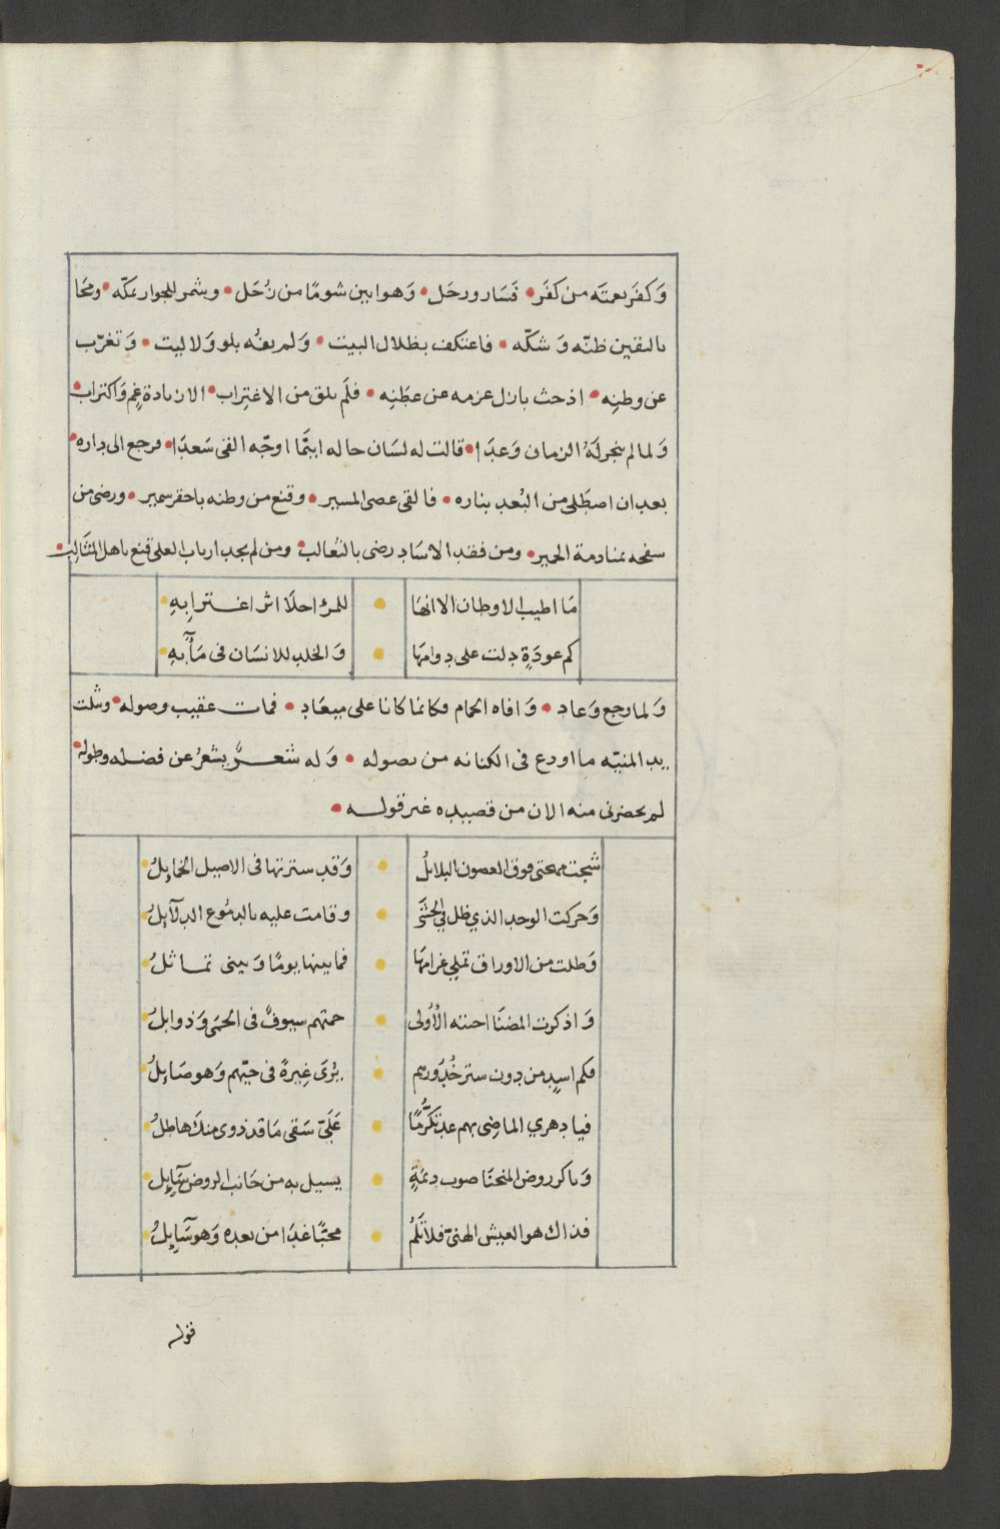 وَكفَر بعمتَه من كفَر • فَسَار ورحَل • وَهوابين شومًا من زُحَل • وشمر للجوار بمكّه • ومحَا
بالىقين ظنّه وَشكّه • فاعتكف بظلال البيت • وَلم يفُه بلو وَلا ليت • وَتغرّب
عن وطنِه • اذ حث بازل عزمه عن عطَنِه • فلَم يلق من الاغتِراب • الا زيادة غم وَاكتراب •
وَلما لم ينجز لَهُ الزمان وَعدَا • قالت له لسَان حاله اينمَا اوجّه القى سَعدَا • فرجع الى داره •
بعد ان اصطَلى من البُعد بناره • فالقى عصى المسير • وقنع من وطنه باحقر سمير • ورضى من
سفحه بمنادمة الحمير • ومن فقد الاسَاد رضى بالثعالب • ومن لم يجد ارباب العلى قنع باهل المثَالب •
مَا اطيب الاوطان الا انهَا • للمرء احلَا اثر اغترابِهِ •
كم عودَةٍ دلت على دوامهَا • وَالخلد للانسَان فى مَآبِهِ •
وَلما رجع وَعاد • وَافاه الحمام فكانما كانا على ميعَاد • فمات عقيب وصوله • وشلت
يد المنيّه ما اودع فى الكنانه من نصوله • وَله شعرٌ يشعرُ عن فضله وطوله •
لم يحضرنى منه الان من قصيده غير قوله •
شجت مهجتى فوق الغصون البلابلُ • وَقد سترتها فى الاصيل الخمايلُ •
وَحركت الوجد الذي ظل فِي الحشَى • وقامت عليه بالدمُوع الدلآيلُ •
وَظلت من الاوراق تملي غرامهَا • فما بينها يومًا وَبينى تماثلُ •
وَاذكرت المضنَا احبته الاُولى • حمتهم سيوفٌ فى الحمَى وَذوابلُ •
فكم اسدٍ من دون ستر خُدورهم • يُرَى غِيرةً فى حيّهم وَهو صَايلُ •
فيا دهري الماضِى بهم عد تكرُّمًا • عَلَيّ سَقى مَا قد ذوى منكَ هاطلُ •
وَباكر روض المنحنَا صوب ديمَةٍ • يسيل به من جَانب الروض سَآيِل •
فذاك هو العيش الهنىّ فلا تَلُمْ • محبًّا غدَا من بعده وَهو سَآيِلُ •
قوله